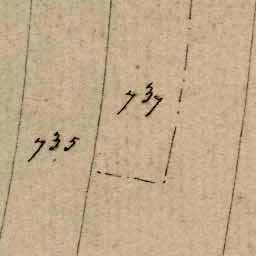 737
735